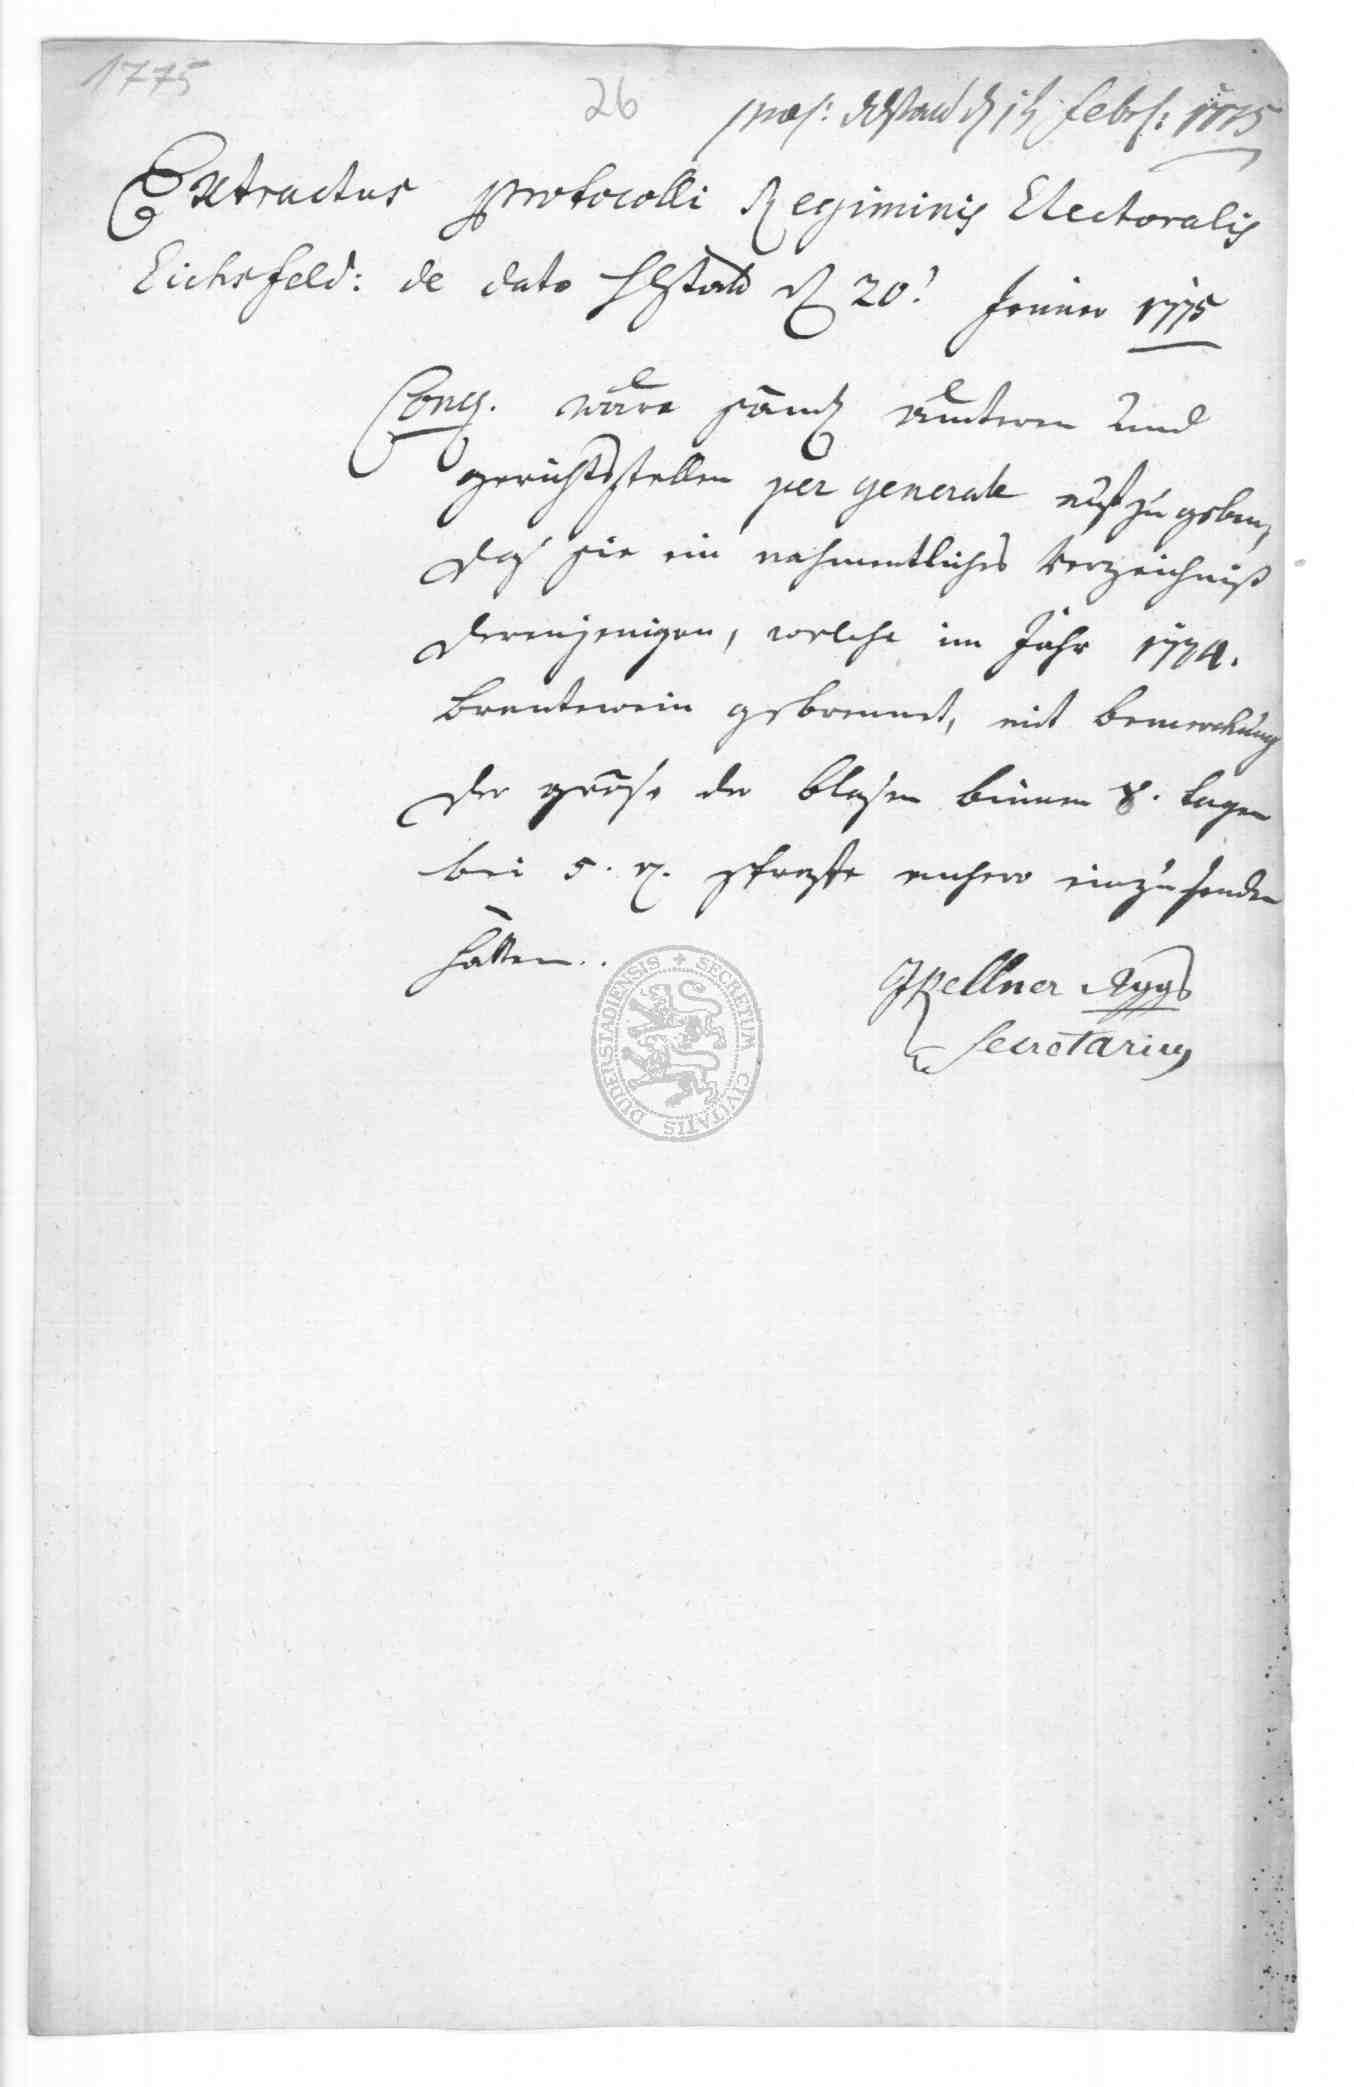 1775
26
præs: dstad d 14 febr: 1775
Extractus protocolli Regiminis Electoralis
Eichsfeld: de dato Hstadt d 20t Jenner 1775
Concl. wäre sämtl ämteren und
gerichtsstellen per generale aufzugeben,
daß sie ein nahmentliches Verzeichniß
derenjenigen, welche im Jahr 1774.
brantewein gebrennet, mit bemerckung
der größe der blasen binnen 8. tagen
bei 5. r. straffe anhero einzusenden
hätten.
JKellner Rggs
Secretarius
SECRETUM CIVITATIS DUDERSTADIENSIS